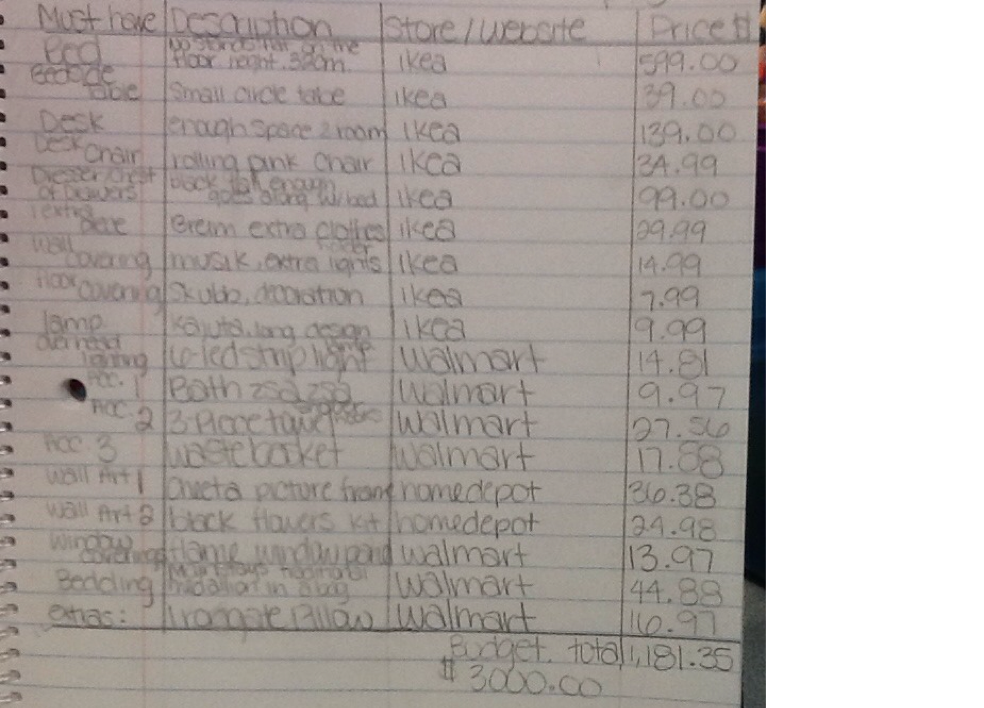 Must have Description Store/Website Price $
Bed stands flat on the floor height. 38cm ikea 599.00
Bedside table Small circle table ikea 39.00
Desk enough space 2 room ikea 139.00
Desk Chair rolling pink chair ikea 34.99
Dresser chest of drawers black tall enough goes along w/bed ikea 99.00
extra extra clothes ikea 29.99
Wall covering musik, extra lights ikea 14.99
floor covering Skubb, decoration ikea 7.99
lamp long design ikea 9.99
lighting led strip light Walmart 14.81
Acc. 1 Bath zsa zsa Walmart 9.97
Acc. 2 3-Piece towel Walmart 27.56
Acc 3 waste basket Walmart 17.88
Wall Art 1 picture frame homedepot 36.38
Wall Art 2 black flowers kit homedepot 24.98
Window coverings window Walmart 13.97
Bedding Mainstays medallion in a bag Walmart 44.88
extras: Irongate Pillow Walmart 16.97
Budget. total 1,181.35
$ 3000.00